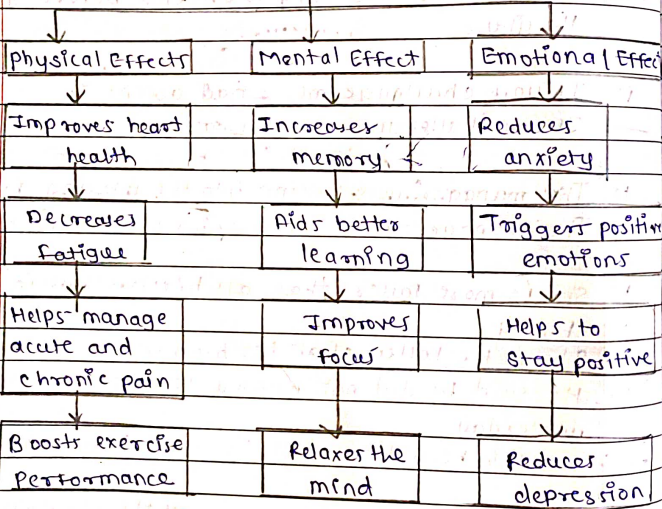 Physical Effects
Improves heart
health
Decreases
fatigue
Helps manage
acute and
chronic pain
Boosts exercise
Performance
Mental Effect
Increases
memory
Aids better
learning
Improves
focus
Relaxes the
mind
Emotional Effec
Reduces
anxiety
Triggers positive
emotions
Helps to
Stay positive
Reduces
depression